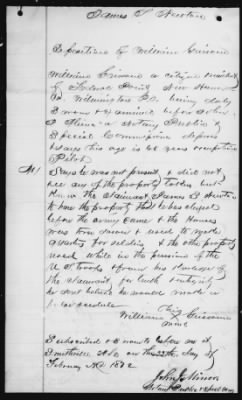 James S Newton
Deposition of William Grissom
William Grissom a citizen resident
of Federal Point New Hanover
Co. Wilmington P.O. being duly
Sworn & Examined before John J.
Minor a Notary Public &
Special Commissioner deposes
& says his age is 61 years occupation
Pilot
Says he was not present & did not
see any of the property taken but
knew the Claimant James S Newton
to have the property
before the army came & the Houses
was torn down & used to make
quarters for soldiers & the other property
used while in the possession of the
U S troops & from his knowledge of
the Claimant for truth & integrity
he don't believe he would make a
false schedule
his
William X Grissom
mark
Subscribed & Sworn to before me at
Smithville N.C. on this 22nd day of
February A.D. 1872
John J Minor